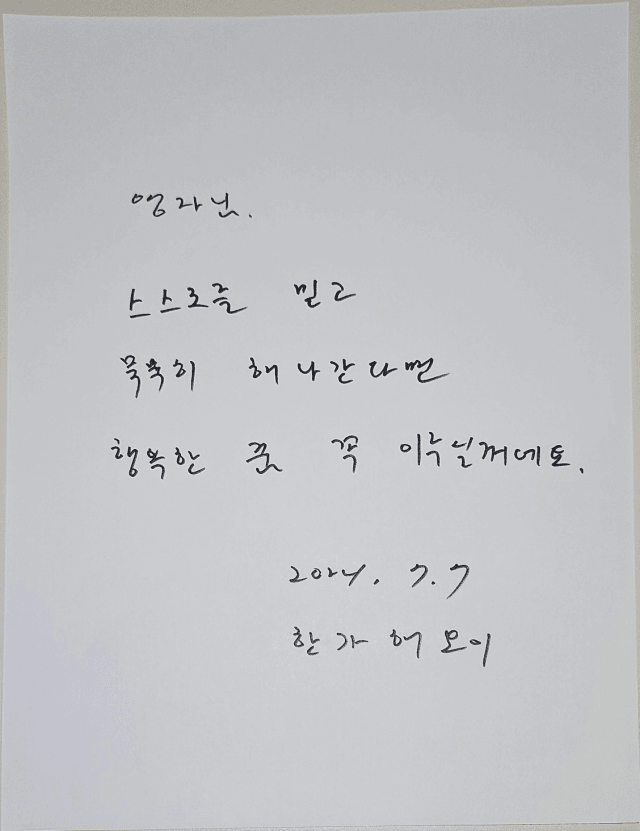 영자님.
스스로를 믿고
묵묵히 해나간다면
행복한 꿈 꼭 이루닐꺼예요.
2024. 7. 7
한가해